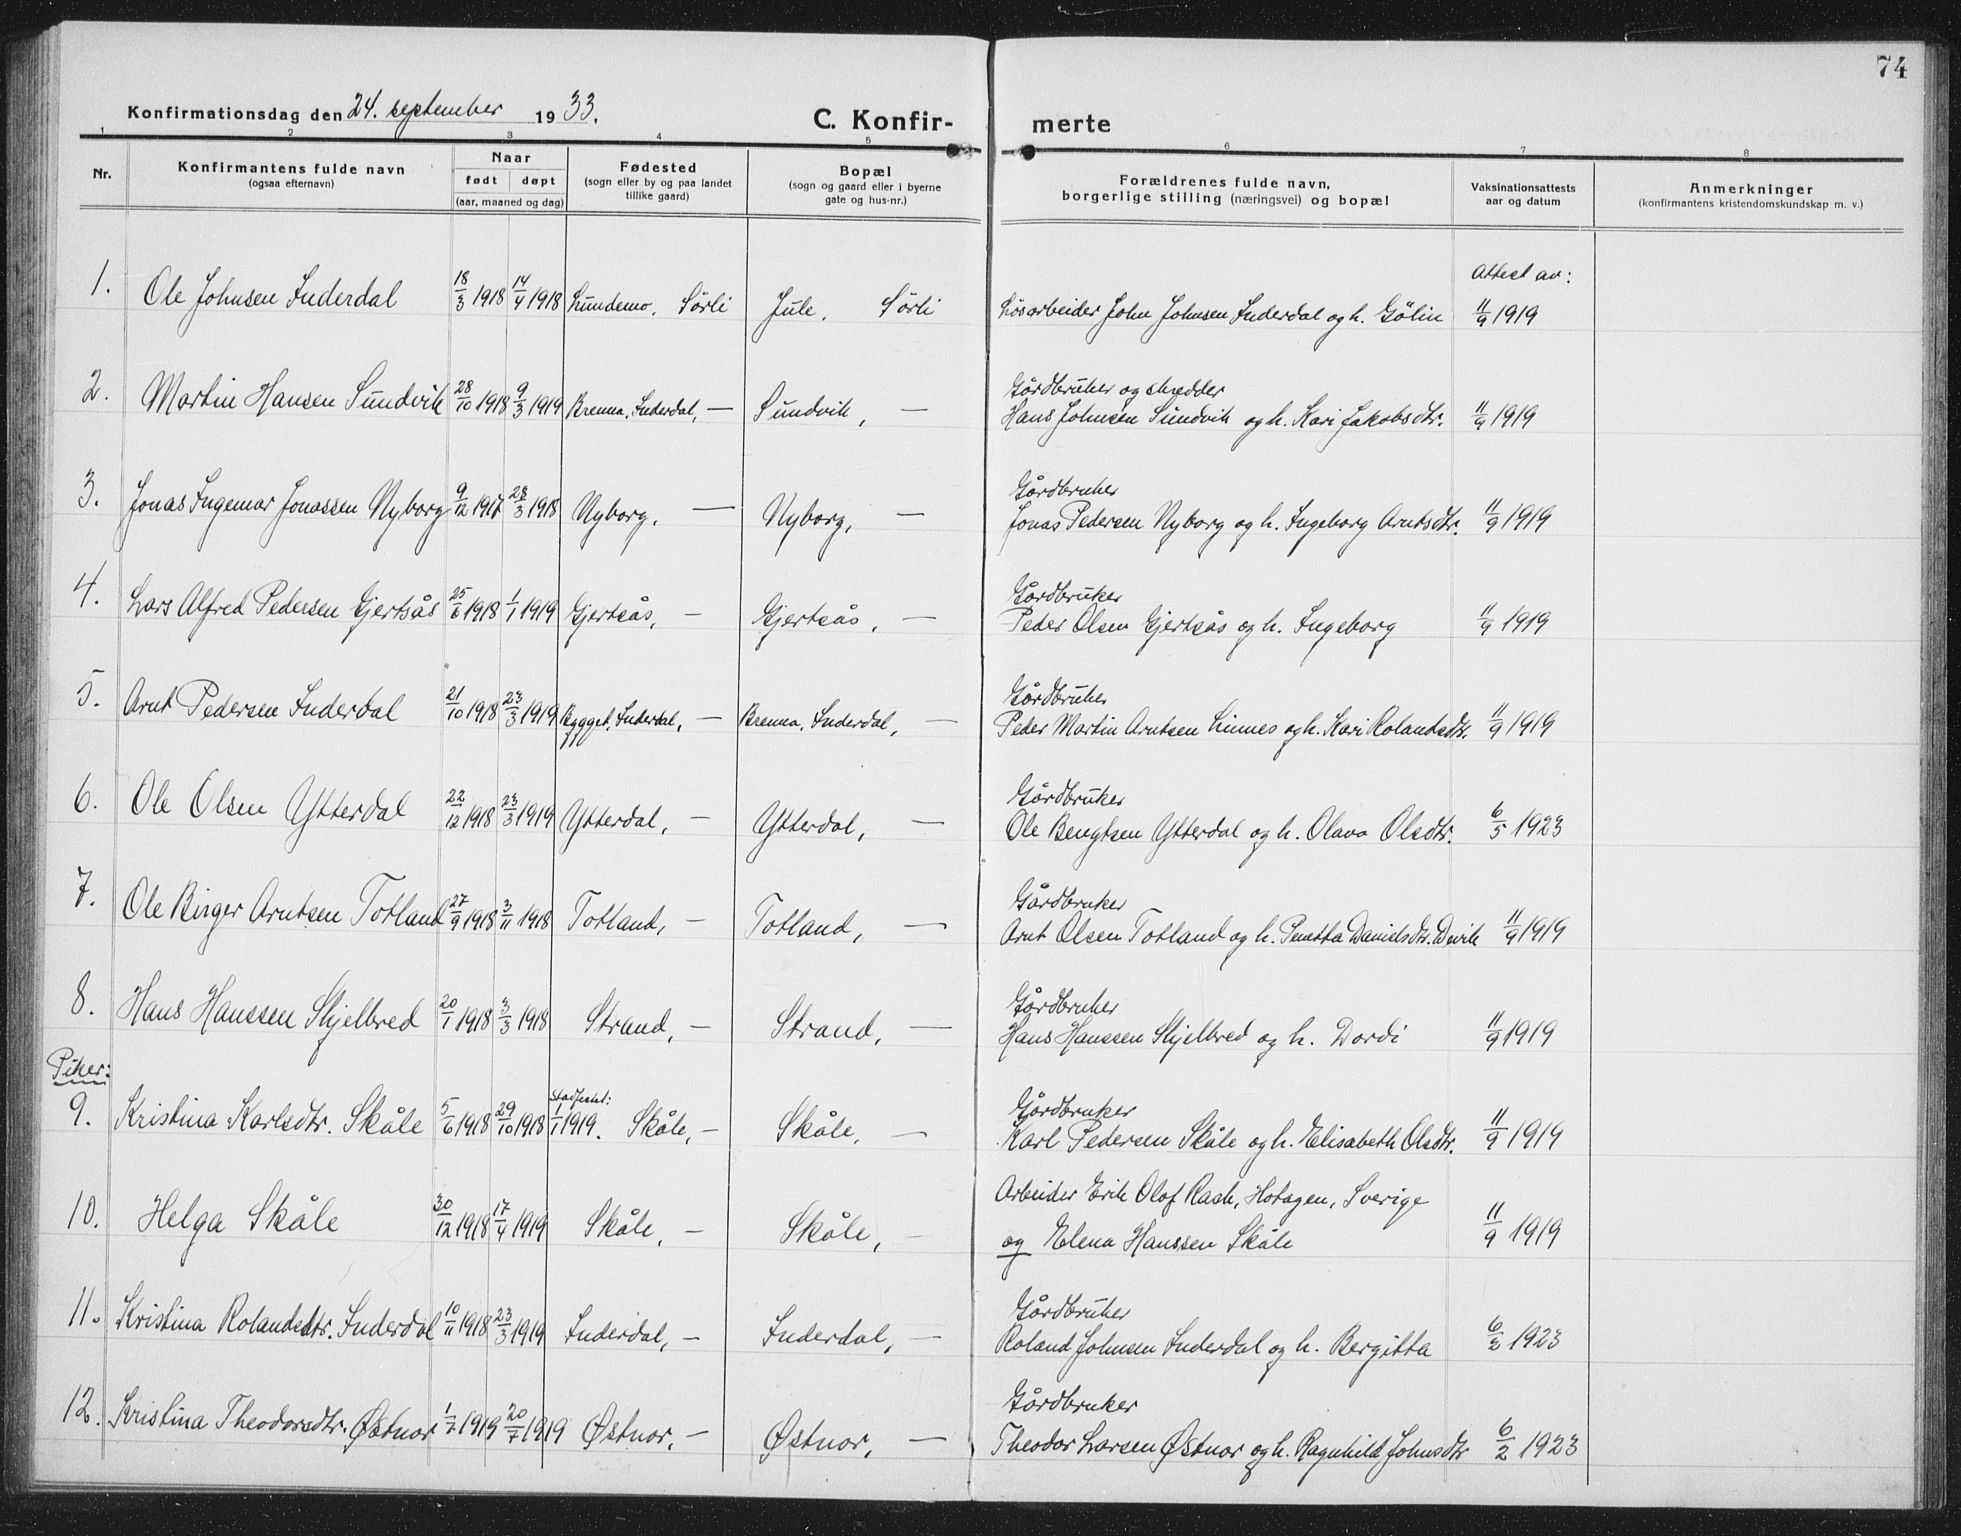 74
Konfirmationsdag den 24. september 1933.
C. Konfir-
merte
1 2 3 4 5 6 7 8
Nr.
Konfirmantens fulde navn
(ogsaa efternavn)
Naar
født døpt
(aar, maaned og dag)
Fødested
(sogn eller by og paa landet
tillike gaard)
Bopæl
(sogn og gaard eller i byerne
gate og hus-nr.)
Forældrenes fulde navn,
borgerlige stilling (næringsvei) og bopæl
Vaksinationsattests
aar og datum
Anmerkninger
(konfirmantens kristendomskundskap m. v.)
Attest av:
1. Ole Johnsen Inderdal 18/3 1918 14/4 1918 Lundemo, Sørli Jule, Sørli Løsarbeider John Johnsen Inderdal og h. Gölin 11/9 1919
Gårdbruker og skredder
2. Martin Hansen Sundvik 28/10 1918 9/3 1919 Brenna, Inderdal, — Sundvik, — Hans Johnsen Sundvik og h. Kari Jakobsdtr. 11/9 1919
Gårdbruker
3. Jonas Ingemar Jonassen Nyborg 9/12 1917 28/3 1918 Nyborg, — Nyborg, — Jonas Pedersen Nyborg og h. Ingeborg Arntsdtr. 11/9 1919
Gårdbruker
4. Lars Alfred Pedersen Gjertsås 25/6 1918 1/1 1919 Gjertsås, — Gjertsås, — Peder Olsen Gjertsås og h. Ingeborg 11/9 1919
Gårdbruker
5. Arnt Pedersen Inderdal 21/10 1918 23/3 1919 Bygget, Inderdal, — Brenna, Inderdal, — Peder Martin Arntsen Linnes og h. Kari Rolandsdtr. 11/9 1919
Gårdbruker
6. Ole Olsen Ytterdal 22/12 1918 23/3 1919 Ytterdal, — Ytterdal, — Ole Bengtsen Ytterdal og h. Olava Olsdtr. 6/5 1923
Gårdbruker
7. Ole Birger Arntsen Totland 27/9 1918 3/11 1918 Totland, — Totland, — Arnt Olsen Totland og h. Danielsdtr. Devik 11/9 1919
Gårdbruker
8. Hans Hanssen Skjelbred 20/1 1918 3/3 1918 Strand, — Strand, — Hans Hanssen Skjelbred og h. Dordi 11/9 1919
Piker:
Stadfestet:
Gårdbruker
9. Kristina Karlsdtr. Skåle 5/6 1918 29/10 1918 1/1 1919. Skåle, — Skåle, — Karl Pedersen Skåle og h. Elisabeth Olsdtr. 11/9 1919
Arbeider Erik Olof Rask, Hotagen, Sverige
10. Helga Skåle 30/12 1918 17/4 1919 Skåle, — Skåle, — og Elena Hanssen Skåle 11/9 1919
Gårdbruker
11. Kristina Rolandsdtr. Inderdal 10/11 1918 23/3 1919 Inderdal, — Inderdal, — Roland Johnsen Inderdal og h. Bergitta 6/2 1923
Gårdbruker
12. Kristina Theodorsdtr. Østnor 1/7 1919 20/7 1919 Østnor, — Østnor, — Theodor Larsen Østnor og h. Ragnhild Johnsdtr 6/2 1923